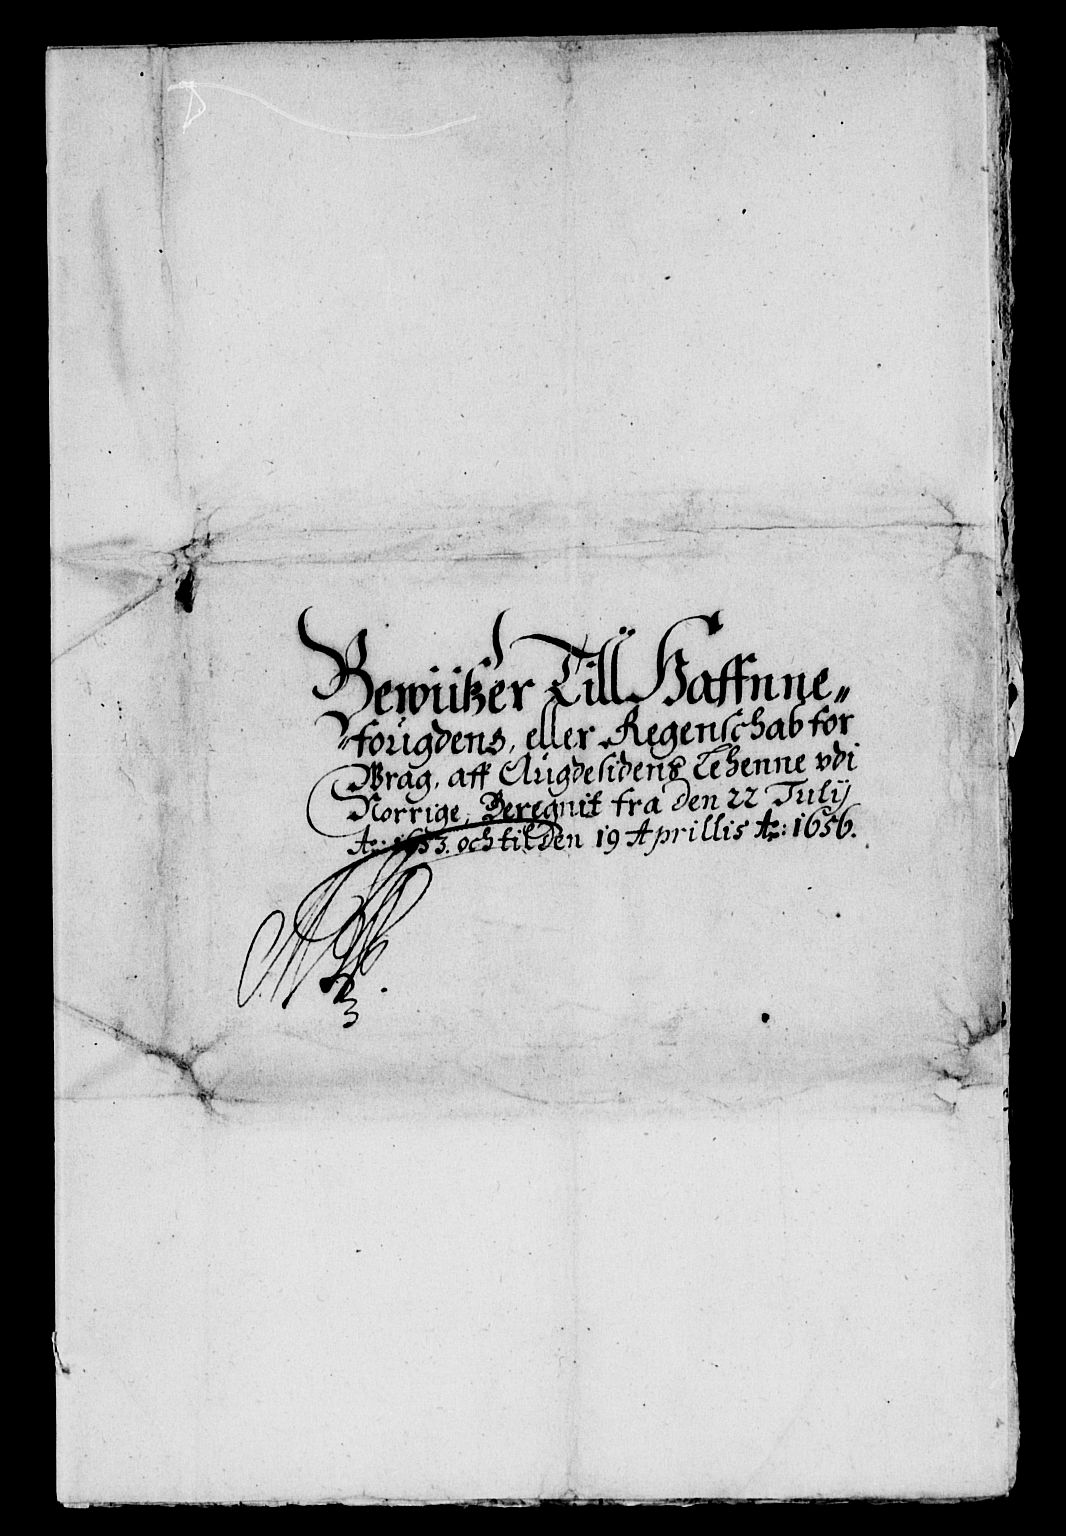 Bewiißer Till Haffnne„
„forigdens, eller Regenschab for
Wrag, aff Augdesidens Lehenne vdi
Norrige, Beregnit fra den 22 Julij
Ao: 1653. och til den 19 Aprillis Ao: 1656.